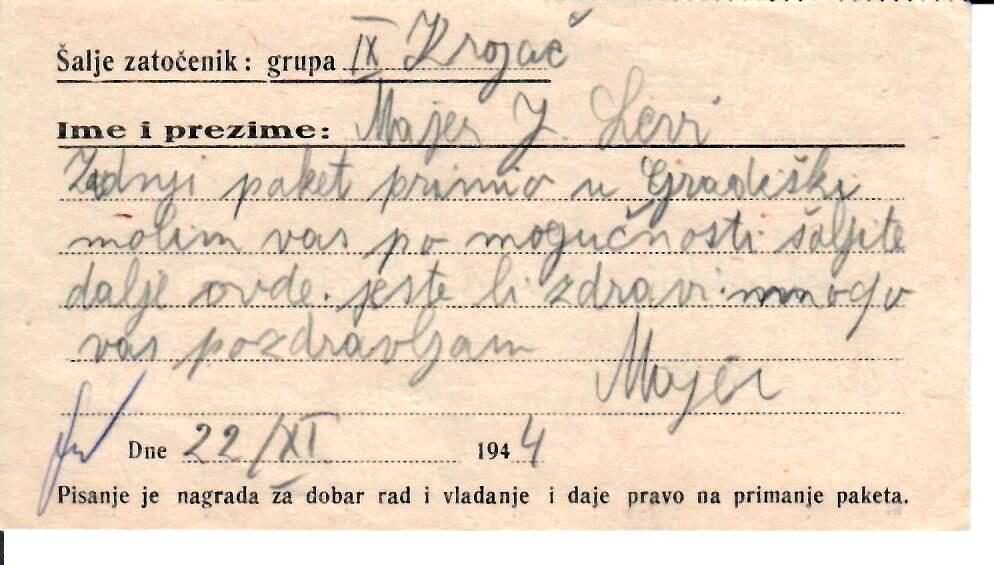 Šalje zatočenik: grupa IX Krojač
Ime i prezime: Majer J. Levi
Zadnji paket primio u Gradiški
molim vas po mogučnosti šaljite
dalje ovde. jeste li zdravi. mnogo
vas pozdravljam Majer
Dne 22/XI 1944
Pisanje je nagrada za dobar rad i vladanje i daje pravo na primanje paketa.